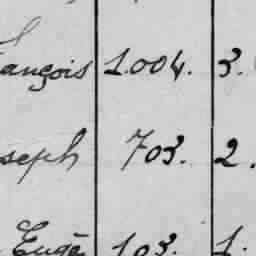 ançois 1.004. 3.
seph 703. 2.
Eugè 103. 1.